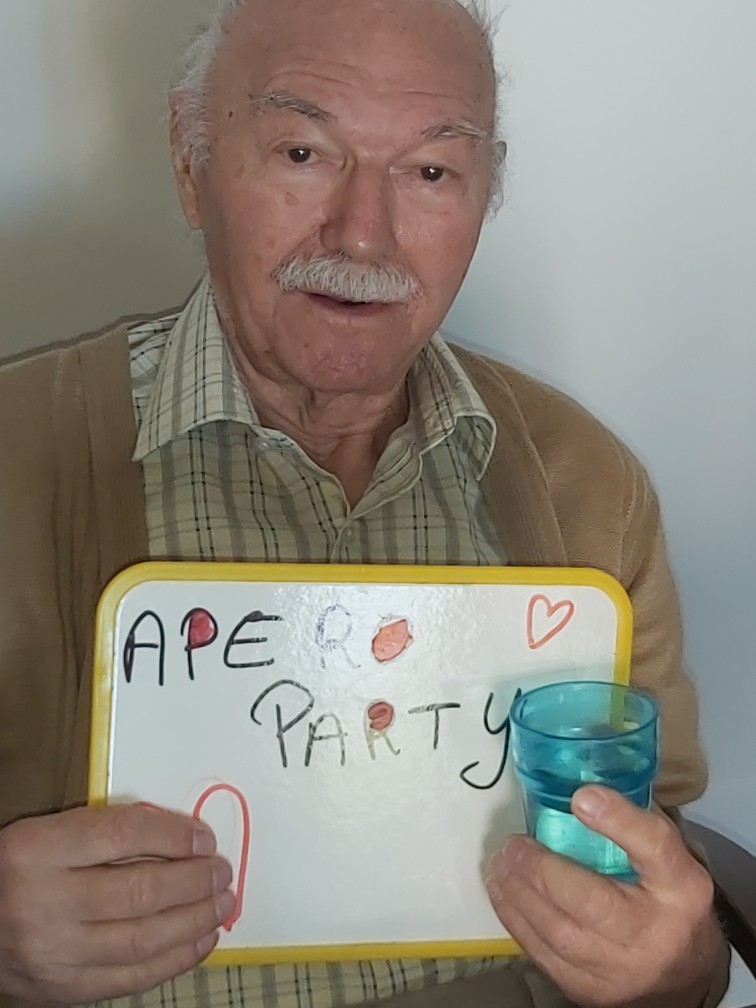 APERO
PARTY